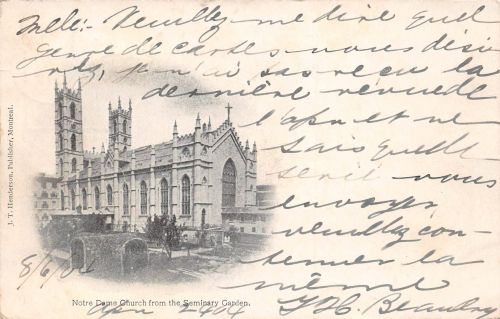 Melle:- Veuillez me dire quel
genre de cartes vous dési
rez, je n'ai pas recu la
dernière revue de
Japon et ne
sais quelle
vous
envoyer
veuillez con-
tenter la
même
J. T. Henderson, Publisher, Montreal.
8/6/04
Notre Dame Church from the Seminary Garden.
Beaudry